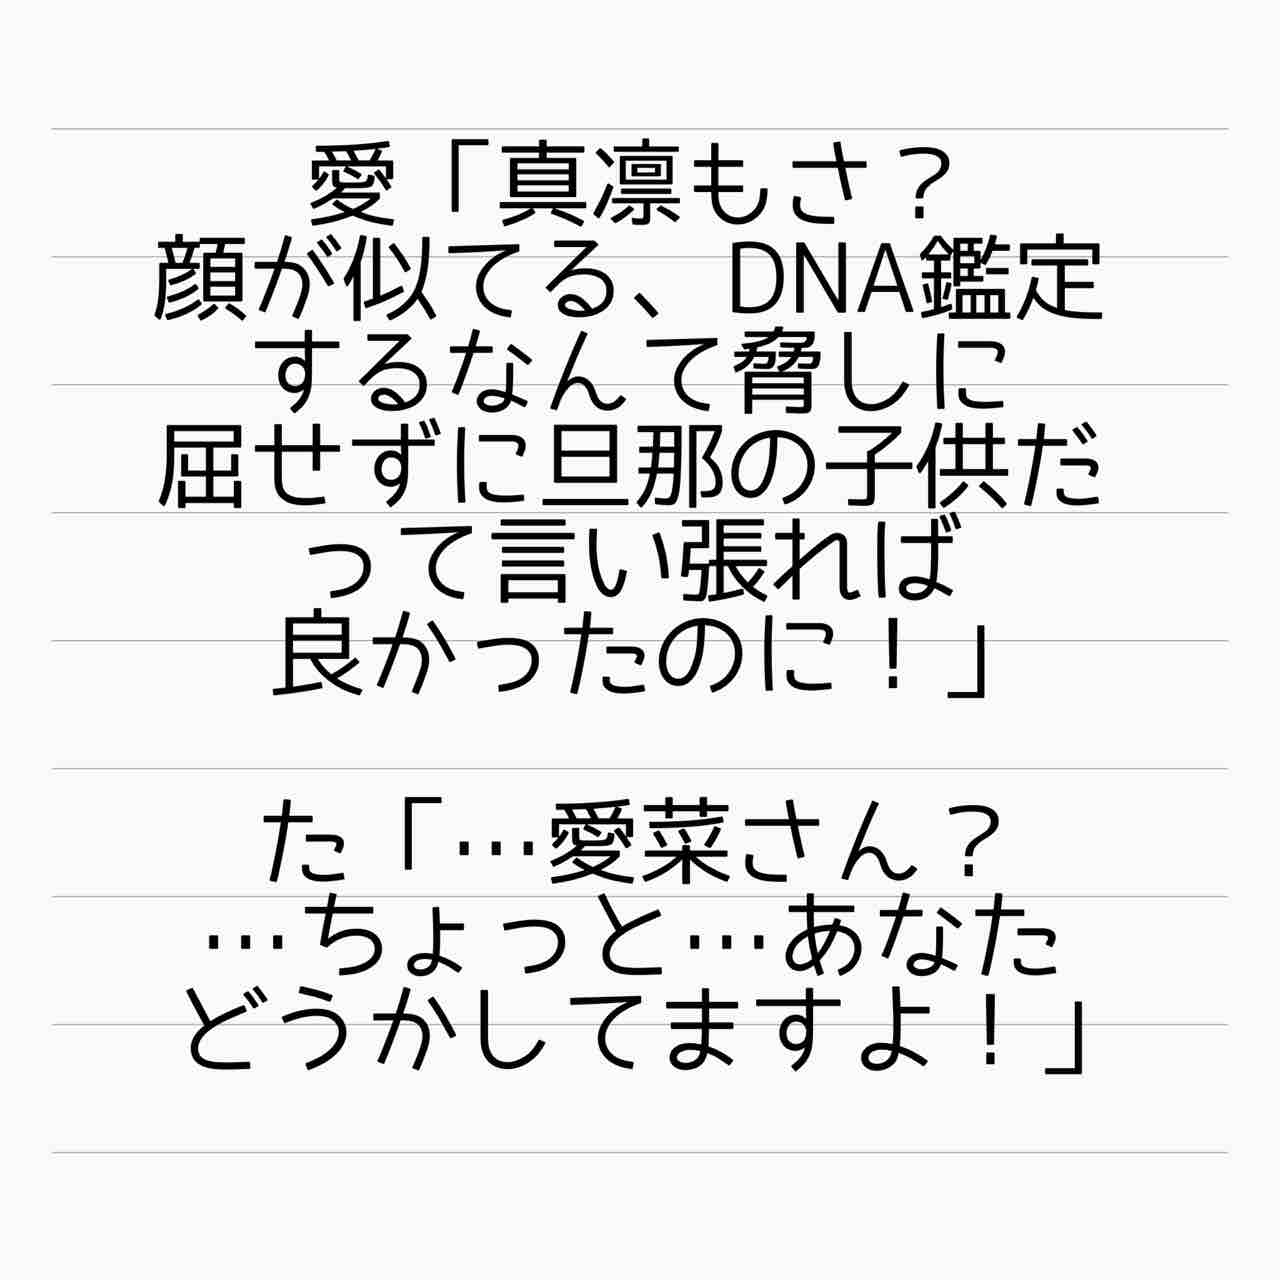 愛「真凛もさ？
顔が似てる、DNA鑑定
するなんて脅しに
屈せずに旦那の子供だ
って言い張れば
良かったのに！」
た「…愛菜さん？
…ちょっと…あなた
どうかしてますよ！」